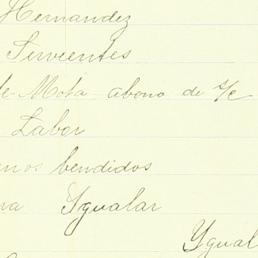 Hernandez
Sirvientes
de Mota abono de s/c
Labor
enos bendidos
ra Ygualar
Ygual